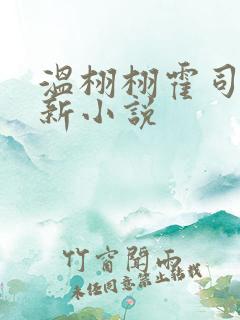 温栩栩霍司
新小说
竹窗闻雨
未经同意禁止转载